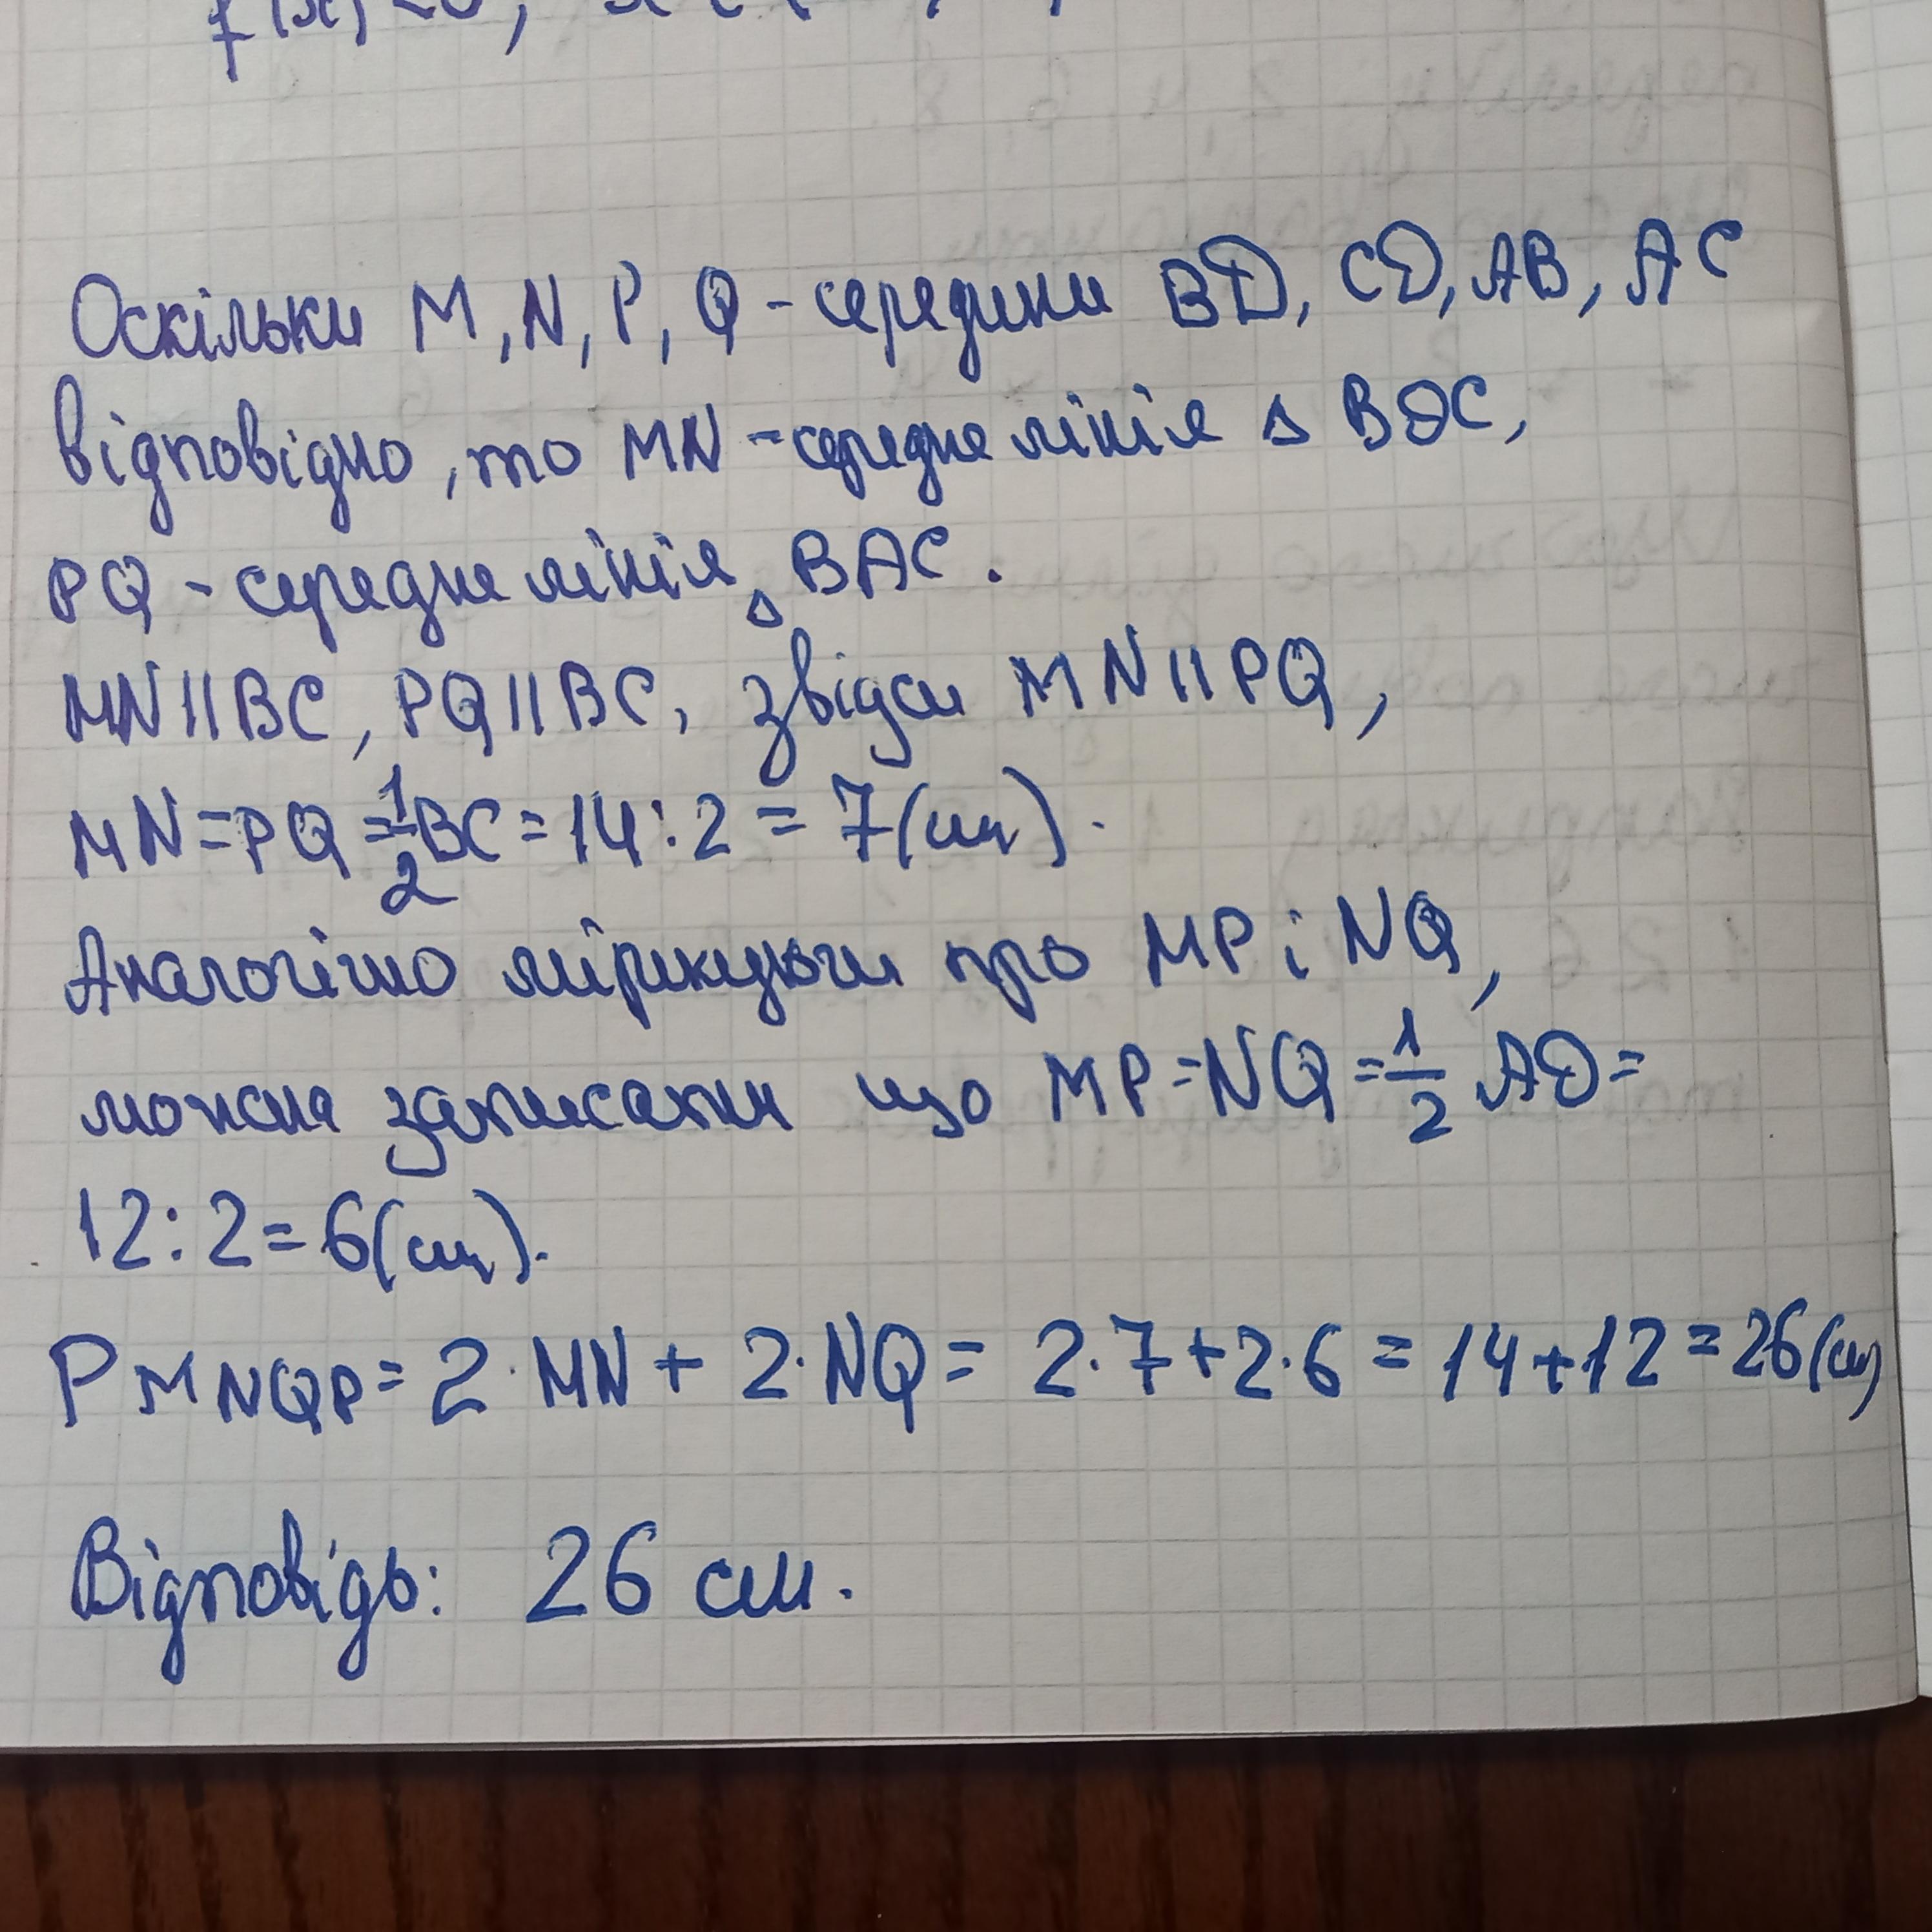 f(x)<0, x
Оскільки M, N, P, Q - середини BD, CD, AB, AC
відповідно, то MN - середнє лінія Δ BDC,
PQ - середнє лінія Δ BAC.
MN||BC, PQ||BC, звідси MN||PQ,
MN=PQ=1/2BC=14:2=7(см).
Аналогічно міркуючи про MP і NQ,
можна записати що MP=NQ=1/2 AD=
12:2=6(см).
P MNQP=2·MN+2·NQ=2·7+2·6=14+12=26(см)
Відповідь: 26 см.